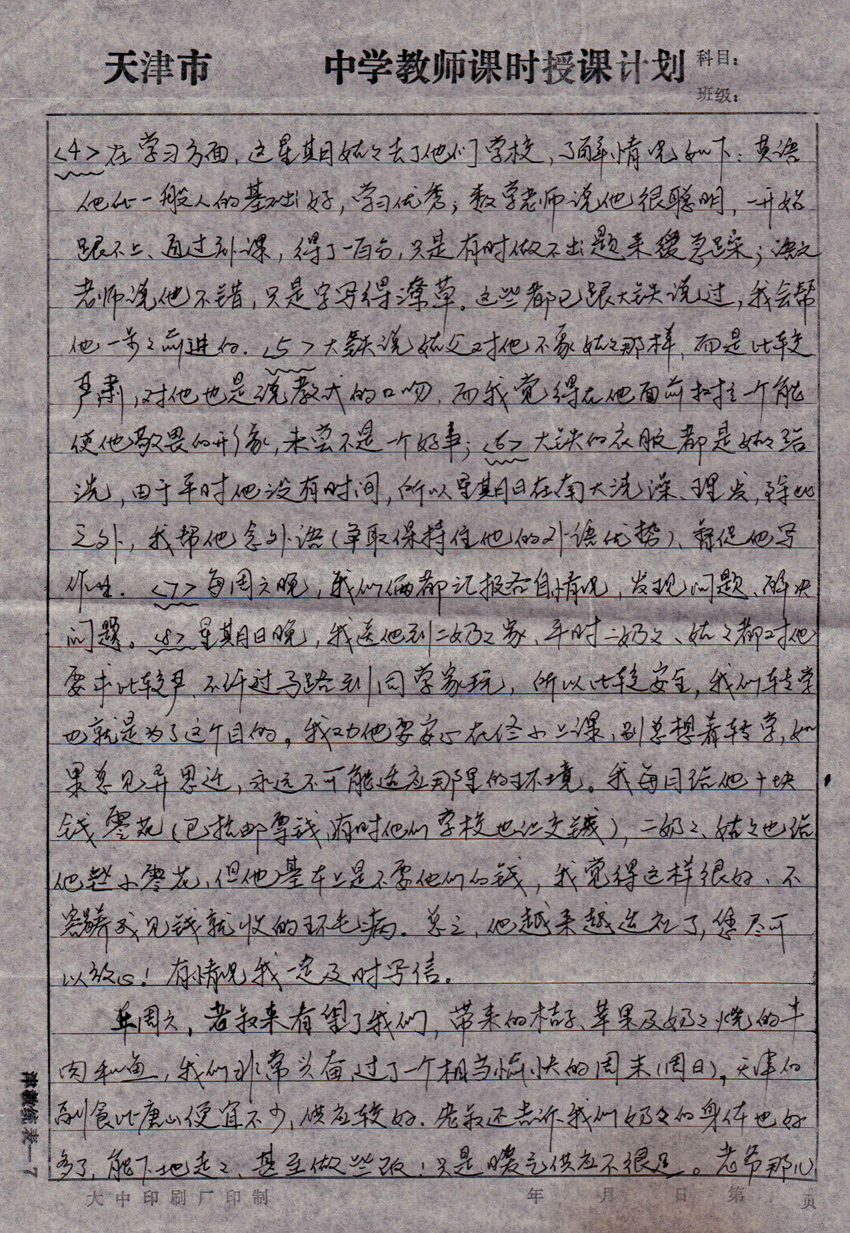 天津市 中学教师课时授课计划 科目：
班级：
<4>在学习方面,这星期日姑々去了他们学校,了解情况如下：英语
他比一般人的基础好,学习优秀；数学老师说他很聪明,一开始
跟不上、通过补课,得了一百分,只是有时做不出题来缓急躁；语文
老师说他不错,只是字写得潦草.这些都已跟大铁说过,我会帮
他一步々前进的.<5>大铁说姑父对他不象姑々那样,而是比较
严肃,对他也是说教式的口吻.而我觉得在他面前树立一个能
使他敬畏的形象,未尝不是一个好事；<6>大铁的衣服都是姑々给
洗,由于平时他没有时间,所以星期日在南大洗澡、理发,除此
之外,我帮他念外语(争取保持住他的外语优势)、督促他写
作业.<7>每周六晚,我们俩都汇报各自情况,发现问题、解决
问题。<8>星期日晚,我送他到二奶々家、平时二奶々、姑々都对他
要求比较严、不许过马路到同学家玩,所以比较安全,我们转学
也就是为了这个目的。我劝他要安心在终小上课,别总想着转学,如
果总见异思迁,永远不可能适应那里的环境。我每月给他十块
钱零花(包括邮票钱,有时他们学校也让交钱),二奶々、姑々也给
他些小零花,但他基本上是不要他们的钱,我觉得这样很好、不
容易养成见钱就收的坏毛病.总之,他越来越适应了,您尽可
以放心！有情况我一定及时写信。
本周六,老叔来看望了我们,带来的桔子、苹果及奶々烧的牛
肉和鱼,我们非常兴奋,过了一个相当愉快的周末(周日),天津的
副食比唐山便宜不少,供应较好.老叔还告诉我们奶々的身体也好
多了,能下地走々、甚至做些饭！只是暖气供应不很足。老爷那儿
津教统表—7
大中印刷厂印制 年 月 日 第 页